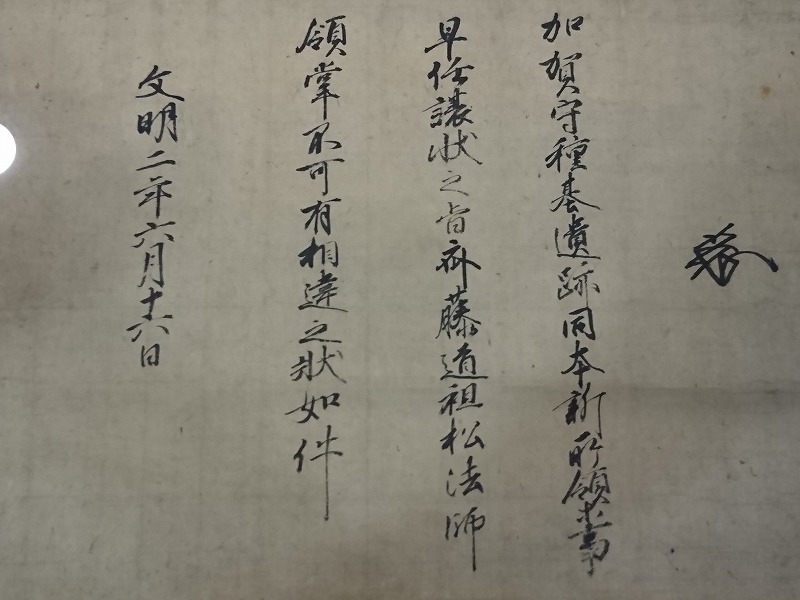 加賀守種基遺跡同本新所領等事
早任譲状之旨斎藤道祖松法師
領掌不可有相違之状如件
文明二年六月十六日